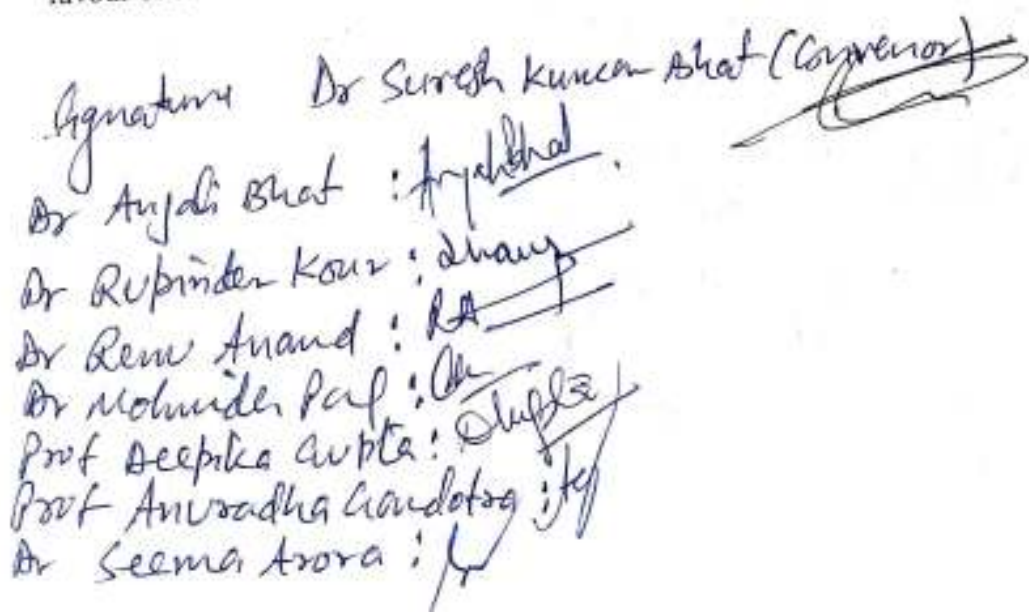 Signature Dr Suresh Kumar Bhat (Convenor)
Dr Anjali Bhat : Anjali Bhat
Dr Rupinder Kour :
Dr Renu Anand : RA
Dr Mohinder Paul :
Prof Deepika Gupta : DGupta
Prof Anuradha Gandotra :
Dr Seema Arora :